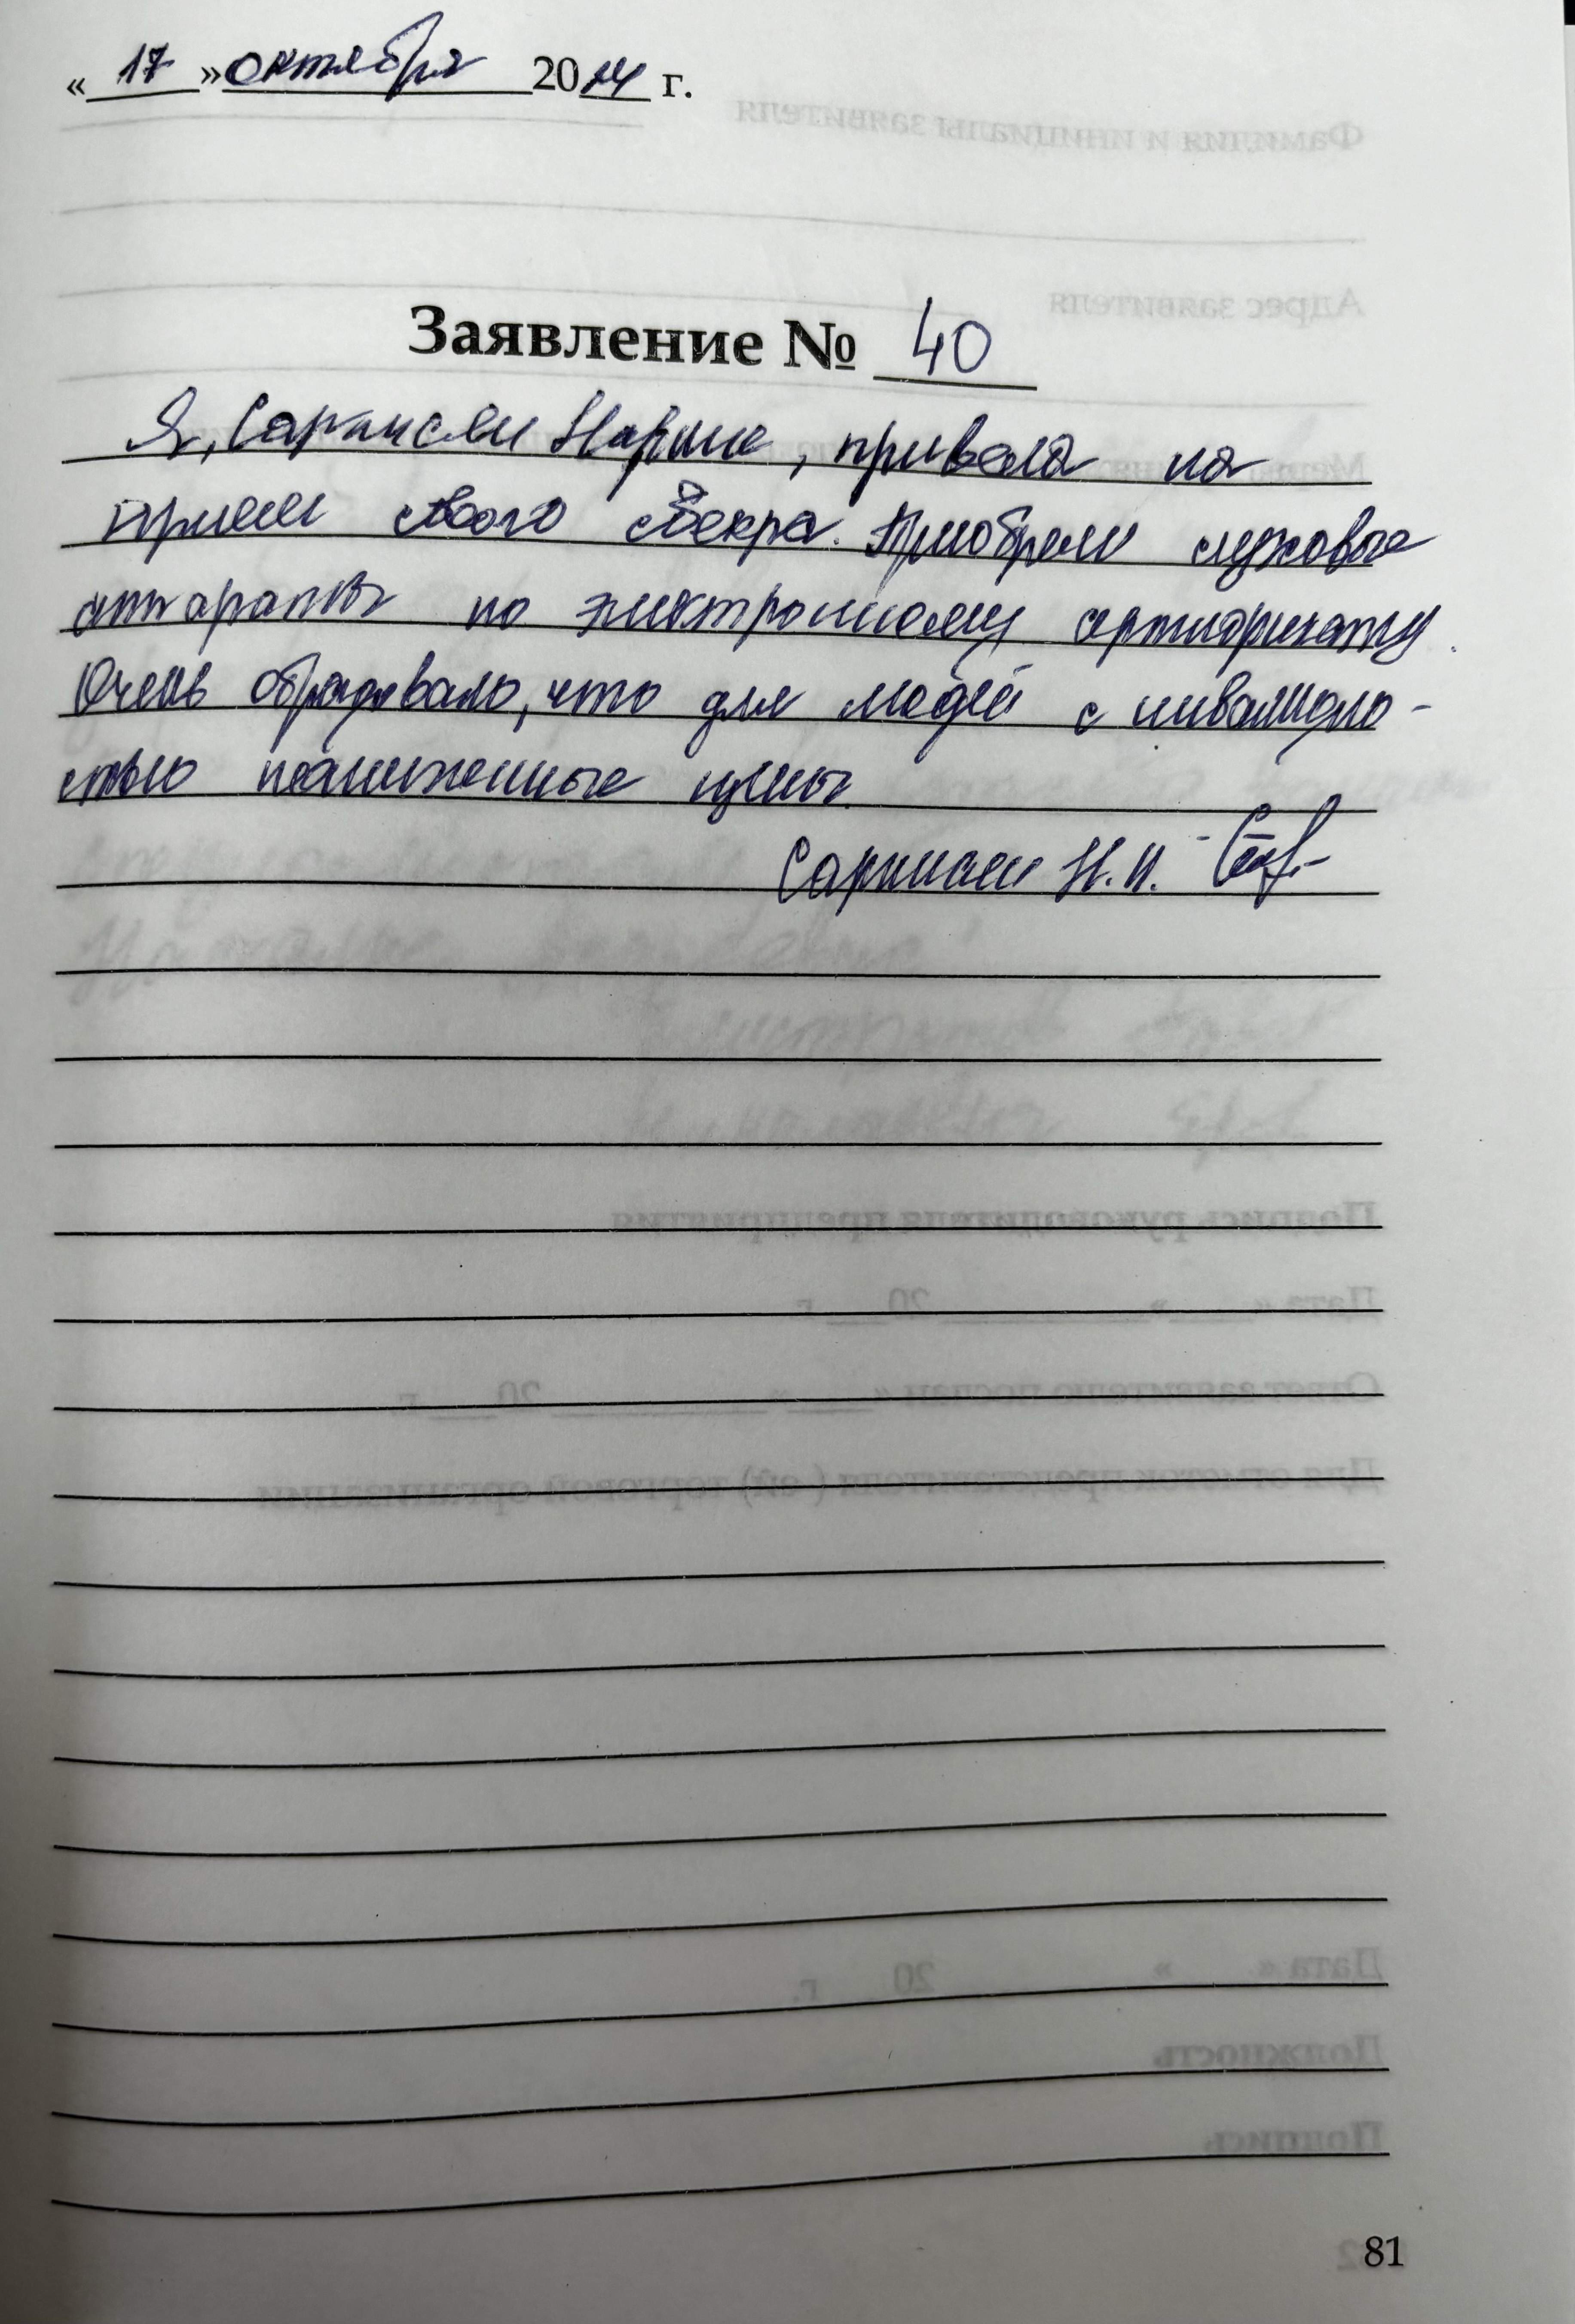 « 17 » октября 2024 г.
Заявление № 40
Я, Саркисян Нарине, привела на
прием своего свекра. Приобрели слуховые
аппараты по электронному сертификату.
Очень обрадовало, что для людей с инвалидно-
стью пониженные цены.
Саркисян Н. И.
81